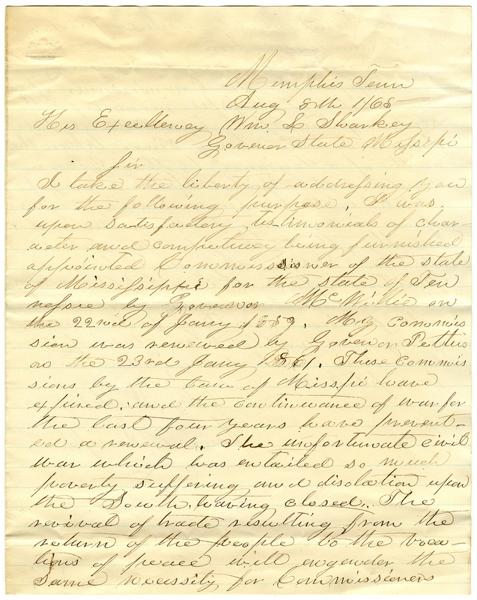 Memphis Tenn
Aug 8th 1865
His Excellency Wm. L Sharkey
Govenor State Missipi
Sir
I take the liberty of addressing you
for the following purpose. I was
upon satisfactory testimonials of char-
acter and competency being furnished
appointed Commissioner of the state
of Mississippi for the state of Ten
nessee by Govenor McWillie on
the 22nd of Jany 1859. My Commis
sion was renewed by Govenor Pettus
on the 23rd Jany 1861. These Commis
sions by the Laws of Misspi have
expired, and the continuance of war for
the last four years have prevent-
ed a renewal. The unfortunate civil
war which has entailed so much
poverty suffering and disolation upon
the South having closed. The
revival of trade resulting from the
return of the people to the voca-
tions of peace will engender the
same necessity for Commissioners